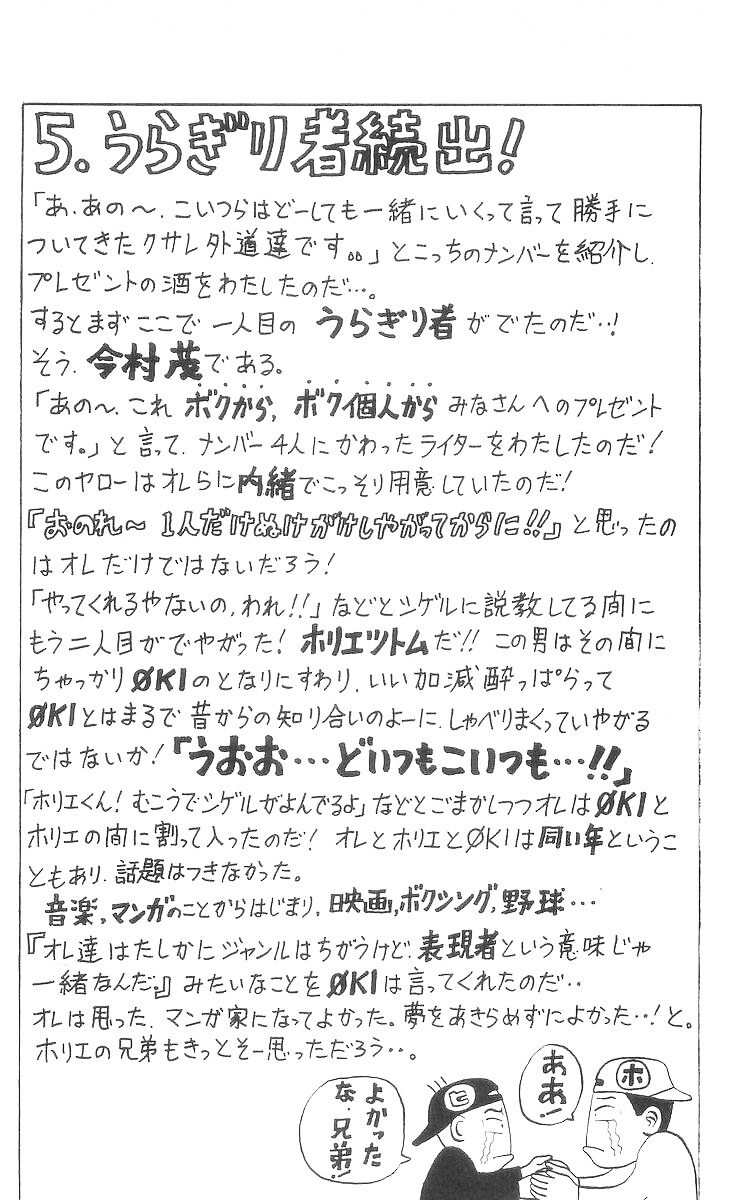 5.うらぎり者続出!
「あ、あの〜、こいつらはどーしても一緒にいくって言って勝手に
ついてきたクサレ外道達です。。」とこっちのナンバーを紹介し、
プレゼントの酒をわたしたのだ…。
するとまずここで一人目の うらぎり者 がでたのだ‥!
そう、今村茂である。
「あの〜、これ ボクから、ボク個人から みなさんへのプレゼント
です。」と言って、ナンバー4人にかわったライターをわたしたのだ!
このヤローはオレらに内緒でこっそり用意していたのだ!
『おのれ〜 1人だけぬけがけしやがってからに!!』と思ったの
はオレだけではないだろう!
「やってくれるやないの、われ!!」などとシゲルに説教してる間に
もう二人目がでやがった! ホリエツトムだ!! この男はその間に
ちゃっかりØKIのとなりにすわり、いい加減酔っぱらって
ØKIとはまるで昔からの知り合いのよーに、しゃべりまくっていやがる
ではないか!『うおお…どいつもこいつも…!!』
「ホリエくん! むこうでシゲルがよんでるよ」などとごまかしつつオレはØKIと
ホリエの間に割って入ったのだ! オレとホリエとØKIは同い年というこ
ともあり、話題はつきなかった。
音楽、マンガのことからはじまり、映画、ボクシング、野球…
『オレ達はたしかにジャンルはちがうけど、表現者という意味じゃ
一緒なんだ。』みたいなことをØKIは言ってくれたのだ‥
オレは思った、マンガ家になってよかった。夢をあきらめずによかった‥!と。
ホリエの兄弟もきっとそー思っただろう‥。
ああ!
よかった
な、兄弟!
ホ
ヒ